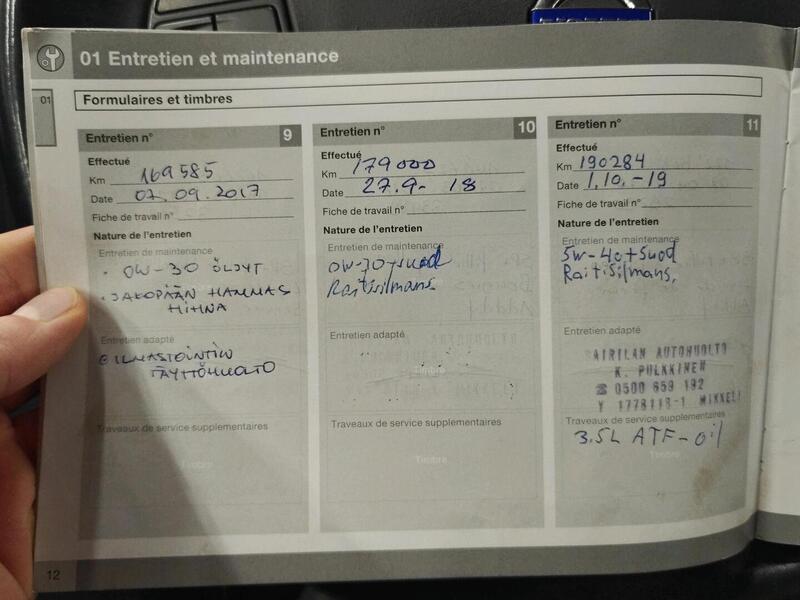 01 Entretien et maintenance
01
Formulaires et timbres
Entretien n° 9
Effectué
Km 169585
Date 07.09.2017
Fiche de travail n°
Nature de l'entretien
Entretien de maintenance
• 0W-30 ÖLJYT
• JAKOPÄÄN HAMMAS
HIHNA
Entretien adapté
ILMASTOINTIN
TÄYTTÖHUOLTO
Traveaux de service supplementaires
Timbre
Entretien n° 10
Effectué
Km 179000
Date 27.9- 18
Fiche de travail n°
Nature de l'entretien
Entretien de maintenance
0W-30+suod
Raitisilmans
Entretien adapté
Timbre
Traveaux de service supplementaires
Timbre
Entretien n° 11
Effectué
Km 190284
Date 1.10.-19
Fiche de travail n°
Nature de l'entretien
Entretien de maintenance
5w-40+Suod
Raitisilmans,
Entretien adapté
AIRILAN AUTOHUOLTO
K. PULKKINEN
☎ 0500 659 192
Y 1778118-1 MIKKELI
Traveaux de service supplementaires
3.5L ATF-oil
Timbre
12